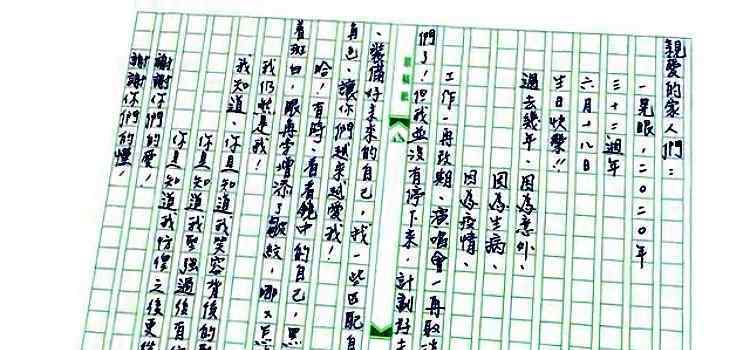 親愛的家人們：
一晃眼，二〇二〇年
三十三週年
六月十八日
生日快樂！！
過去幾年、因為意外、
因為生病、
因為疫情、
工作一再改期、演唱會一再取消
們了！但我並沒有停下來，計劃好未
、裝備好未來的自己，我一些匹配自
角色、讓你們越來越愛我！
哈！有時、看看鏡中的自己，黑
著斑白，眼角多增添了皺紋，哪又
我仍然是我！
我知道、你是知道我笑容背後的
你是知道我堅強過後有
你是知道我彷徨之後更
謝謝你們的愛！
謝謝你們的懂！